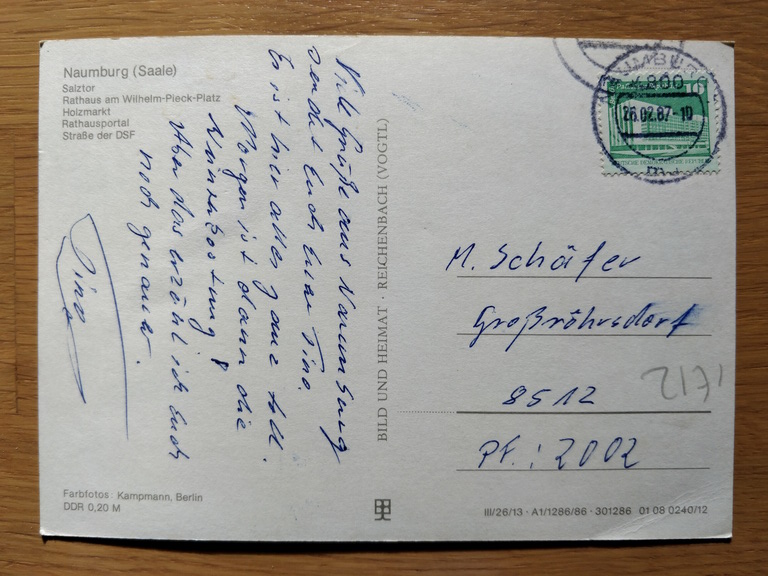 Naumburg (Saale)
Salztor
Rathaus am Wilhelm-Pieck-Platz
Holzmarkt
Rathausportal
Straße der DSF
Viel Grüße aus Naumburg
sendet Euch Eure Tina.
Es ist hier alles ganz toll.
Morgen ist dann die
Aber das erzähl ich Euch
noch genauer.
Tina
Farbfotos: Kampmann, Berlin
DDR 0,20 M
BILD UND HEIMAT · REICHENBACH (VOGTL)
NAUMBURG
4800
26.02.87-10
10
DEUTSCHE DEMOKRATISCHE REPUBLIK
M. Schäfer
Großröhrsdorf
8512
PF.: 2002
III/26/13 · A1/1286/86 · 301286 01 08 0240/12